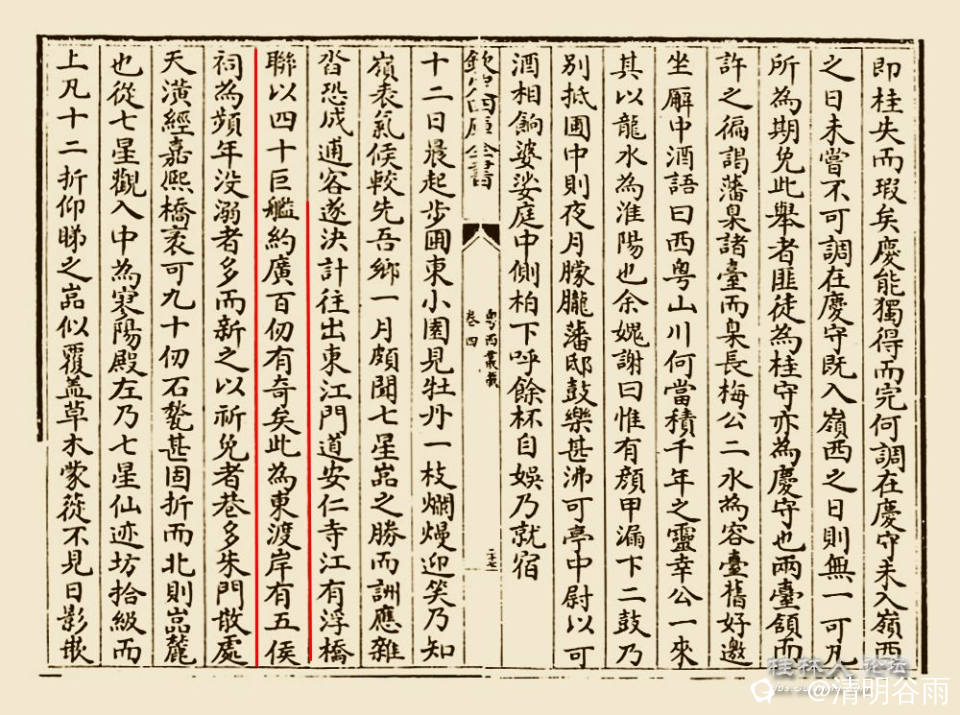 即桂失而瑕矣慶能獨得而完何調在慶守未入嶺西
之日未嘗不可調在慶守既入嶺西之日則無一可凡
所為期免此舉者匪徒為桂守亦為慶守也兩臺頷而
許之徧謁藩臬諸臺而臬長梅公二水為容臺舊好邀
坐廨中酒語曰西粤山川何當積千年之靈幸公一來
其以龍水為淮陽也余媿謝曰惟有顏甲漏下二鼓乃
別抵圃中則夜月朦朧藩邸鼓樂甚沸可亭中尉以可
酒相餉婆娑庭中側柏下呼餘杯自娛乃就宿
欽定四庫全書
粤西叢載
卷四
二十七
十二日晨起步圃東小園見牡丹一枝爛熳迎笑乃知
嶺表氣候較先吾鄉一月頗聞七星嵓之勝而詶應雜
沓恐成逋客遂決計往出東江門道安仁寺江有浮橋
聯以四十巨艦約廣百仞有奇矣此為東渡岸有五侯
祠為頻年没溺者多而新之以祈免者巷多朱門散處
天潢經嘉熙橋袤可九十仞石甃甚固折而北則嵓麓
也從七星觀入中為寥陽殿左乃七星仙迹坊拾級而
上凡十二折仰睇之嵓似覆盖草木蒙蓰不見日影嵌
桂林人论坛
@清明谷雨